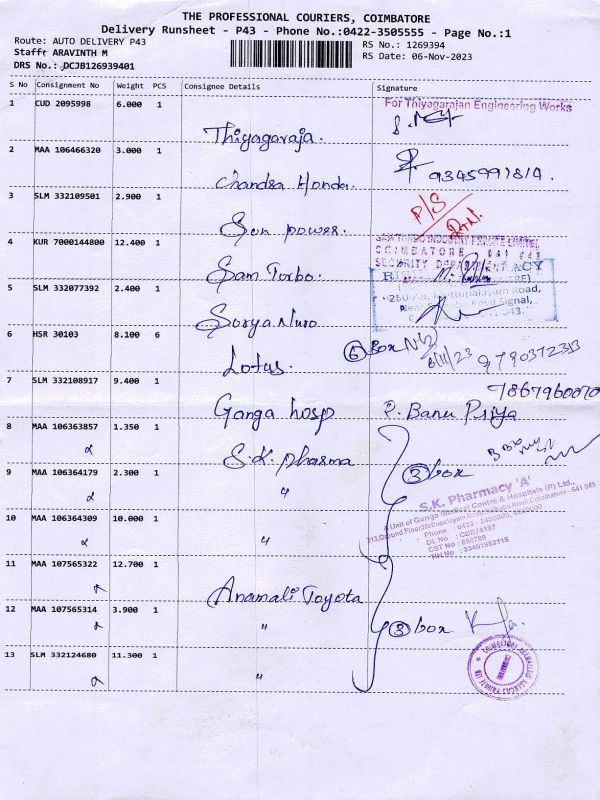 THE PROFESSIONAL COURIERS, COIMBATORE
Delivery Runsheet - P43 - Phone No.:0422-3505555 - Page No.:1
Route: AUTO DELIVERY P43
RS No.: 1269394
Staff: ARAVINTH M
RS Date: 06-Nov-2023
DRS No.: DCJB126939401
S No Consignment No Weight PCS Consignee Details Signature
1 CUD 2095998 6.000 1 Thiyagaraja. For Thiyagarajan Engineering Works
2 MAA 106466320 3.000 1 Chandra Honda.
3 SLM 332109501 2.900 1 Sun power. P/S
4 KUR 7000144800 12.400 1 Sam Turbo. SAM TURBO INDUSTRY PRIVATE LIMITED,
COIMBATORE
SECURITY DEPARTMENT
5 SLM 332077392 2.400 1 Surya Nuro
6 HSR 30103 8.100 6 Lotus. 6 Box 6/11/23
7 SLM 332108917 9.400 1 Ganga hosp P. Banu Priya
8 MAA 106363857 1.350 1 S.K. pharma
9 MAA 106364179 2.300 1 " 3 box
S.K. Pharmacy 'A'
A Unit of Ganga Medical Centre & Hospitals (P) Ltd.,
10 MAA 106364309 10.000 1 "
11 MAA 107565322 12.700 1 Anamali Toyota
12 MAA 107565314 3.900 1 " 3 box
13 SLM 332124680 11.300 1 "